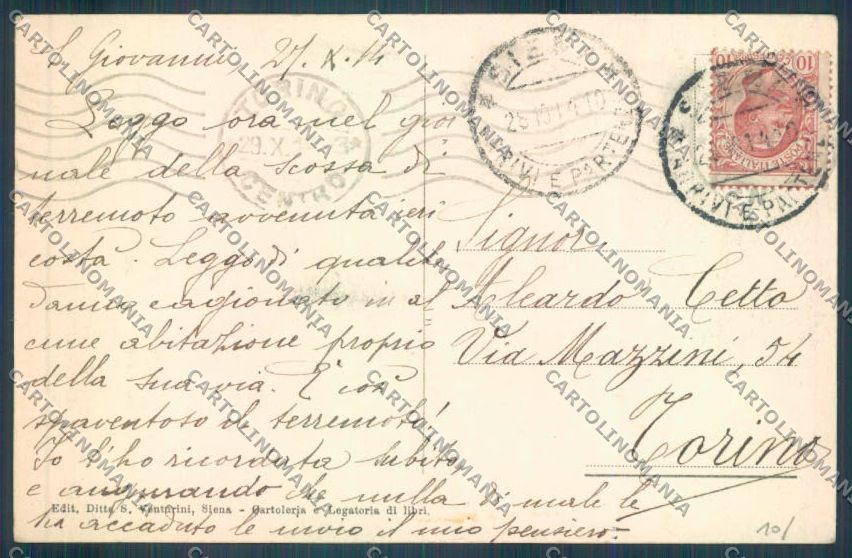 S. Giovanni, 27. X. 14
Leggo ora nel gior
nale della scossa di
terremoto avvenuta ieri
costà. Leggo di qualche
danno cagionato in al
cune abitazione proprio
della sua via. È così
spaventoso il terremoto!
Io l'ho ricordata subito,
e augurando che nulla di male le
ha accaduto le invio il mio pensiero.
Signor
Aleardo Cetta
Via Mazzini, 54
Torino
TORINO
29.X.1
CENTRO
SIENA
28.10.14.10
ARRIVI E PARTENZE
ARRIVI E PARTENZE
10 10
POSTE ITALIANE
Edit. Ditta S. Venturini, Siena - Cartoleria e Legatoria di libri.
10/
CARTOLINOMANIA